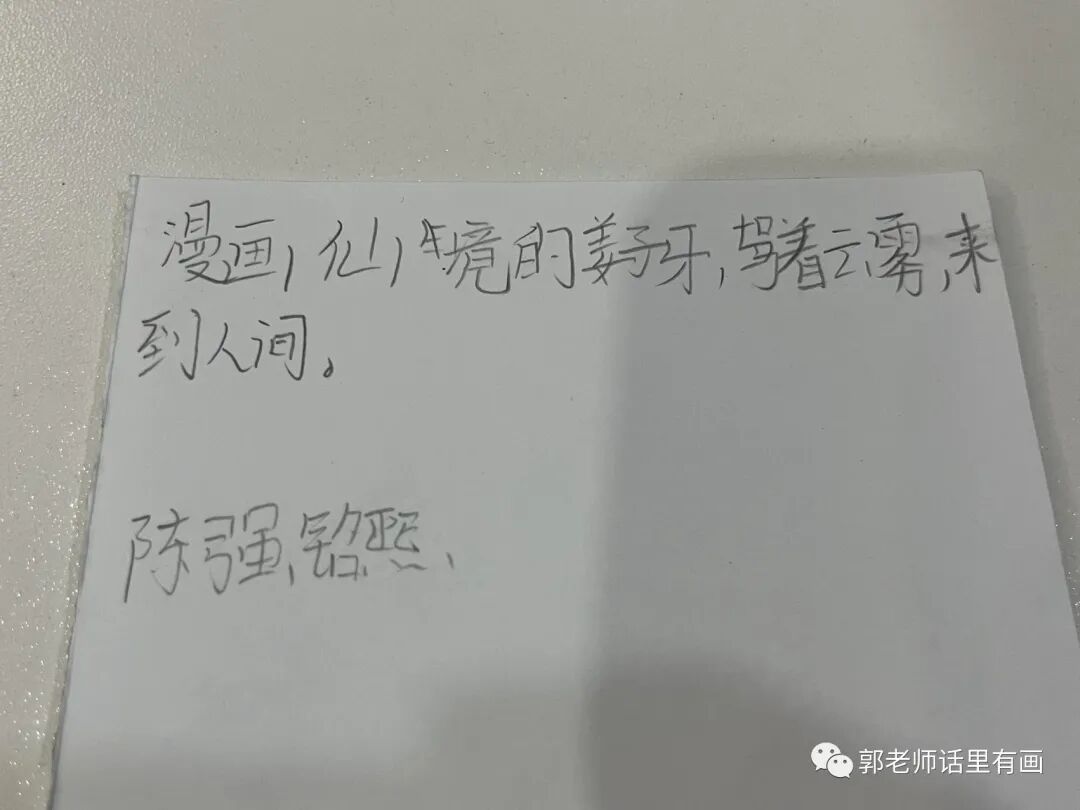 漫画,仙境的姜子牙,驾着云雾,来
到人间。
陈强、铭熙、
郭老师话里有画